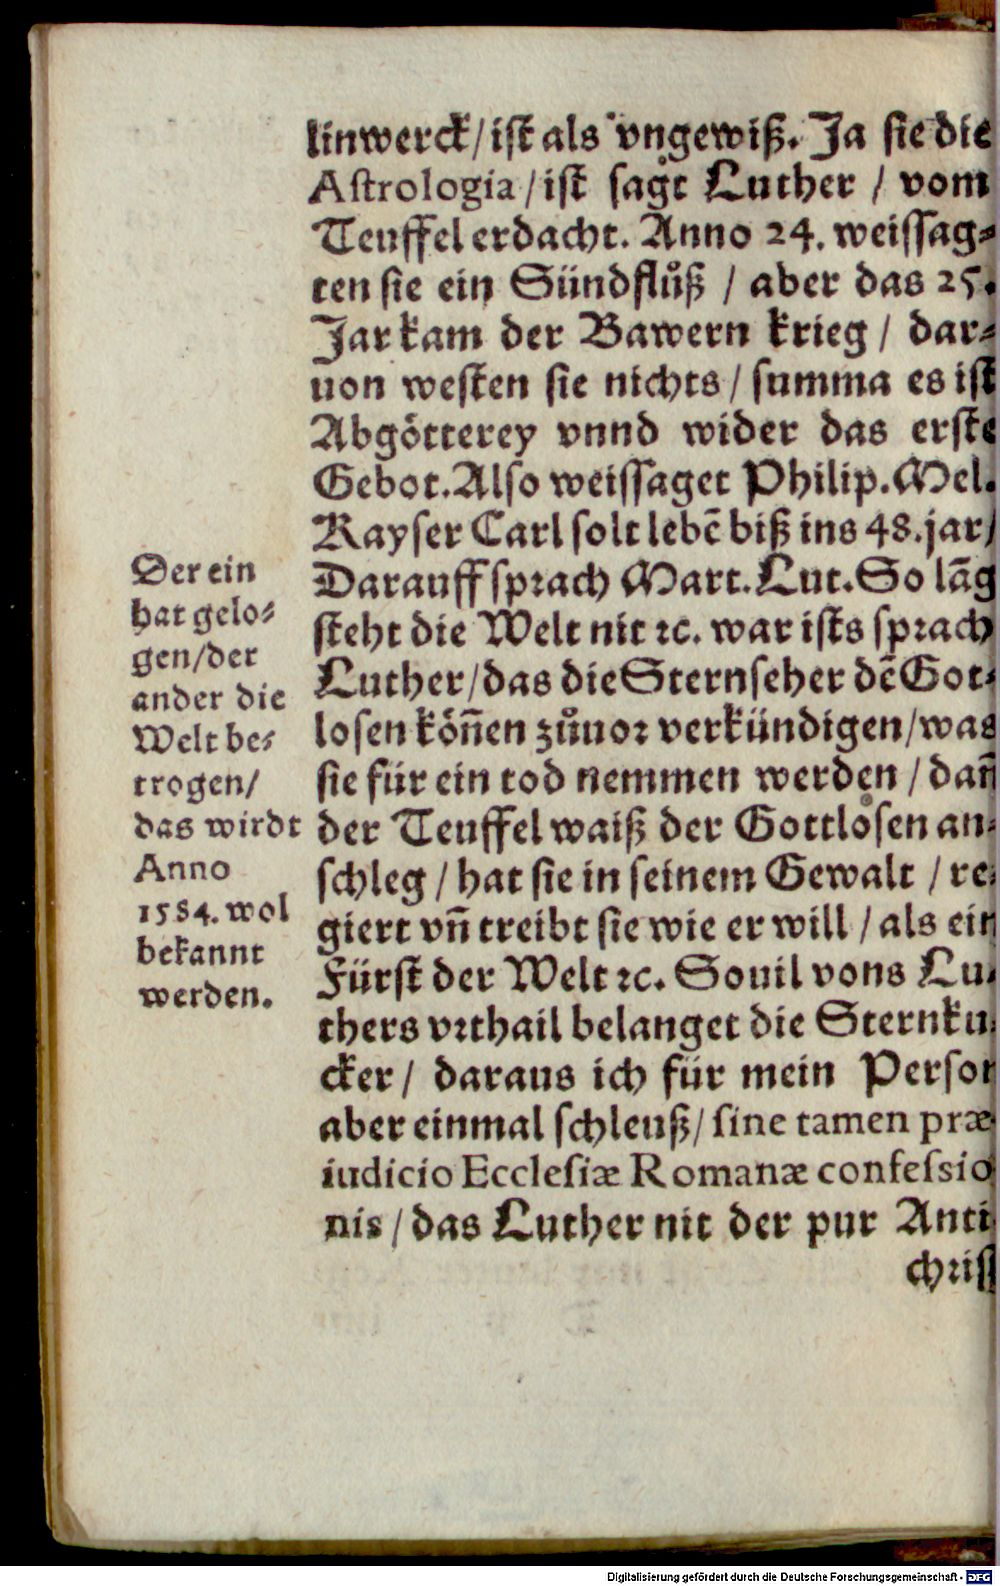 linwerck/ist als vngewiß. Ja sie die
Astrologia/ist sagt Luther / vom
Teuffel erdacht. Anno 24. weissag-
ten sie ein Sündflůß / aber das 25.
Jar kam der Bawern krieg / dar-
uon westen sie nichts / summa es ist
Abgötterey vnnd wider das erste
Gebot. Also weissaget Philip. Mel.
Kayser Carl solt lebē biß ins 48. jar/
Darauff sprach Mart. Lut. So lāg
steht die Welt nit ꝛc. war ists sprach
Luther/das die Sternseher dē Got-
losen köñen zůuor verkündigen/was
sie für ein tod nemmen werden / dañ
der Teuffel waiß der Gottlosen an-
schleg / hat sie in seinem Gewalt / re-
giert vñ treibt sie wie er will / als ein
Fürst der Welt ꝛc. Souil vons Lu-
thers vrthail belanget die Sternku-
cker / daraus ich für mein Person
aber einmal schleuß/ sine tamen præ-
iudicio Ecclesiæ Romanæ confessio
nis / das Luther nit der pur Anti
christ
Der ein
hat gelo-
gen/der
ander die
Welt be-
trogen/
das wirdt
Anno
1584. wol
bekannt
werden.
Digitalisierung gefördert durch die Deutsche Forschungsgemeinschaft - DFG